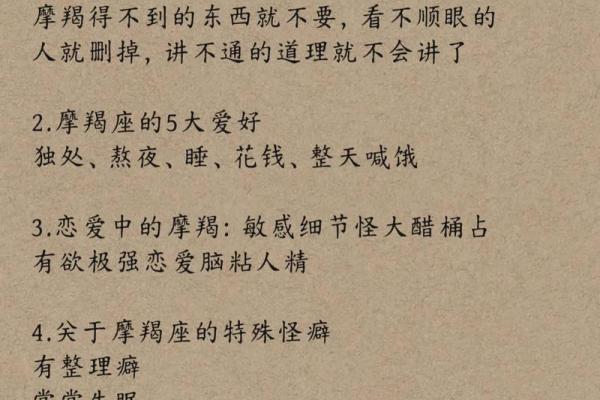 摩羯得不到的东西就不要，看不顺眼的
人就删掉，讲不通的道理就不会讲了
2.摩羯座的5大爱好
独处、熬夜、睡、花钱、整天喊饿
3.恋爱中的摩羯：敏感细节怪大醋桶占
有欲极强恋爱脑粘人精
4.关于摩羯座的特殊怪癖
有整理癖